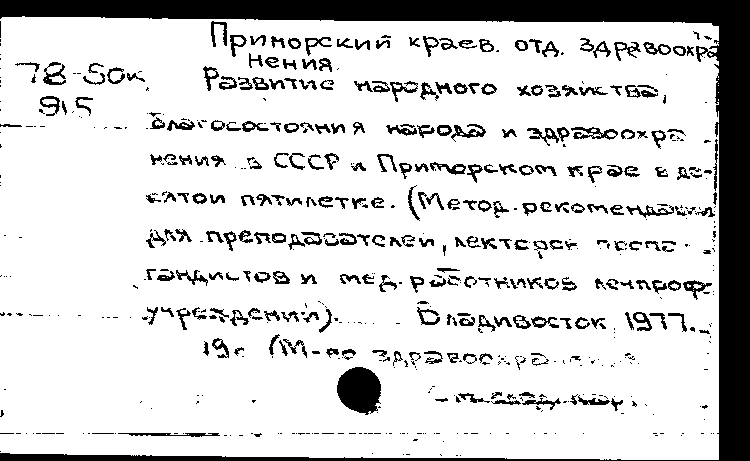 Приморский краев. отд. здравоохра
нения
78-50к
915
Развитие народного хозяйства,
благосостояния народа и здравоохра
нения в СССР и Приморском крае в де-
сятой пятилетке. (Метод. рекомендации
для преподавателей, лекторов, пропа-
гандистов и мед. работников лечпроф-
учреждений). Владивосток, 1977.
19с (М-во здравоохранения